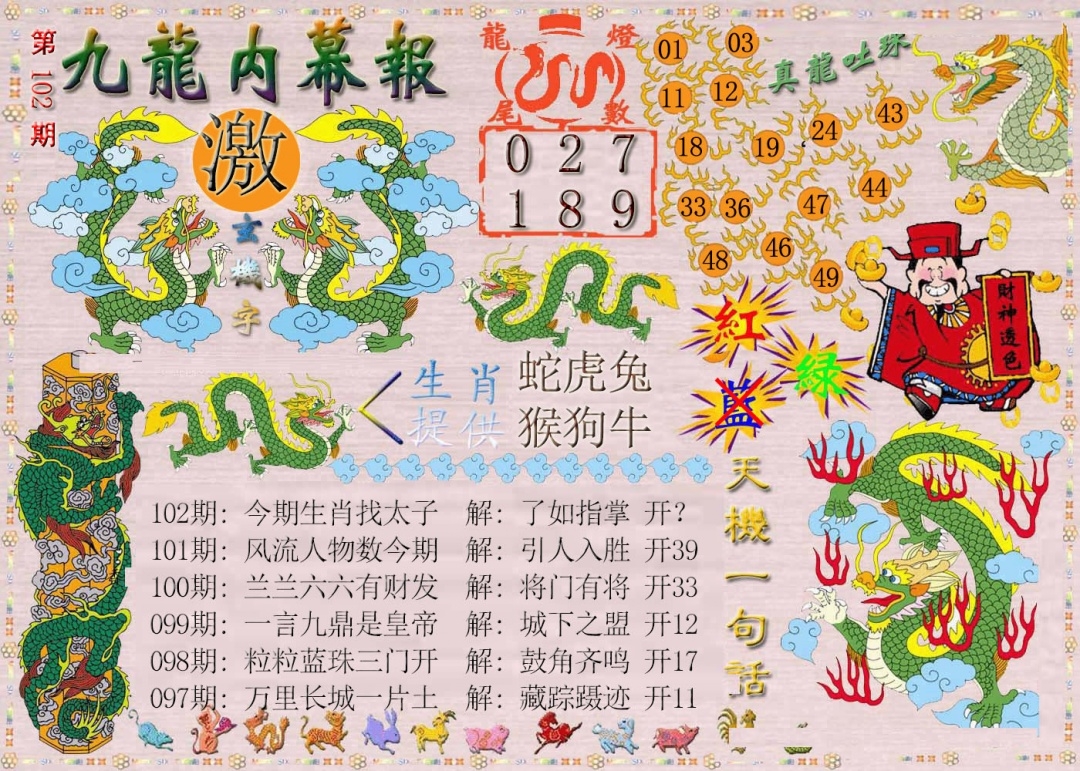 第102期
九龍内幕報
激
玄機字
龍燈
尾數
0 2 7
1 8 9
真龍吐珠
01 03
11 12
18 19 24 43
33 36 47 44
48 46 49
紅
綠
藍
財神透色
生肖提供
蛇虎兔
猴狗牛
天機一句話
102期：今期生肖找太子 解：了如指掌 开？
101期：风流人物数今期 解：引人入胜 开39
100期：兰兰六六有财发 解：将门有将 开33
099期：一言九鼎是皇帝 解：城下之盟 开12
098期：粒粒蓝珠三门开 解：鼓角齐鸣 开17
097期：万里长城一片土 解：藏踪蹑迹 开11